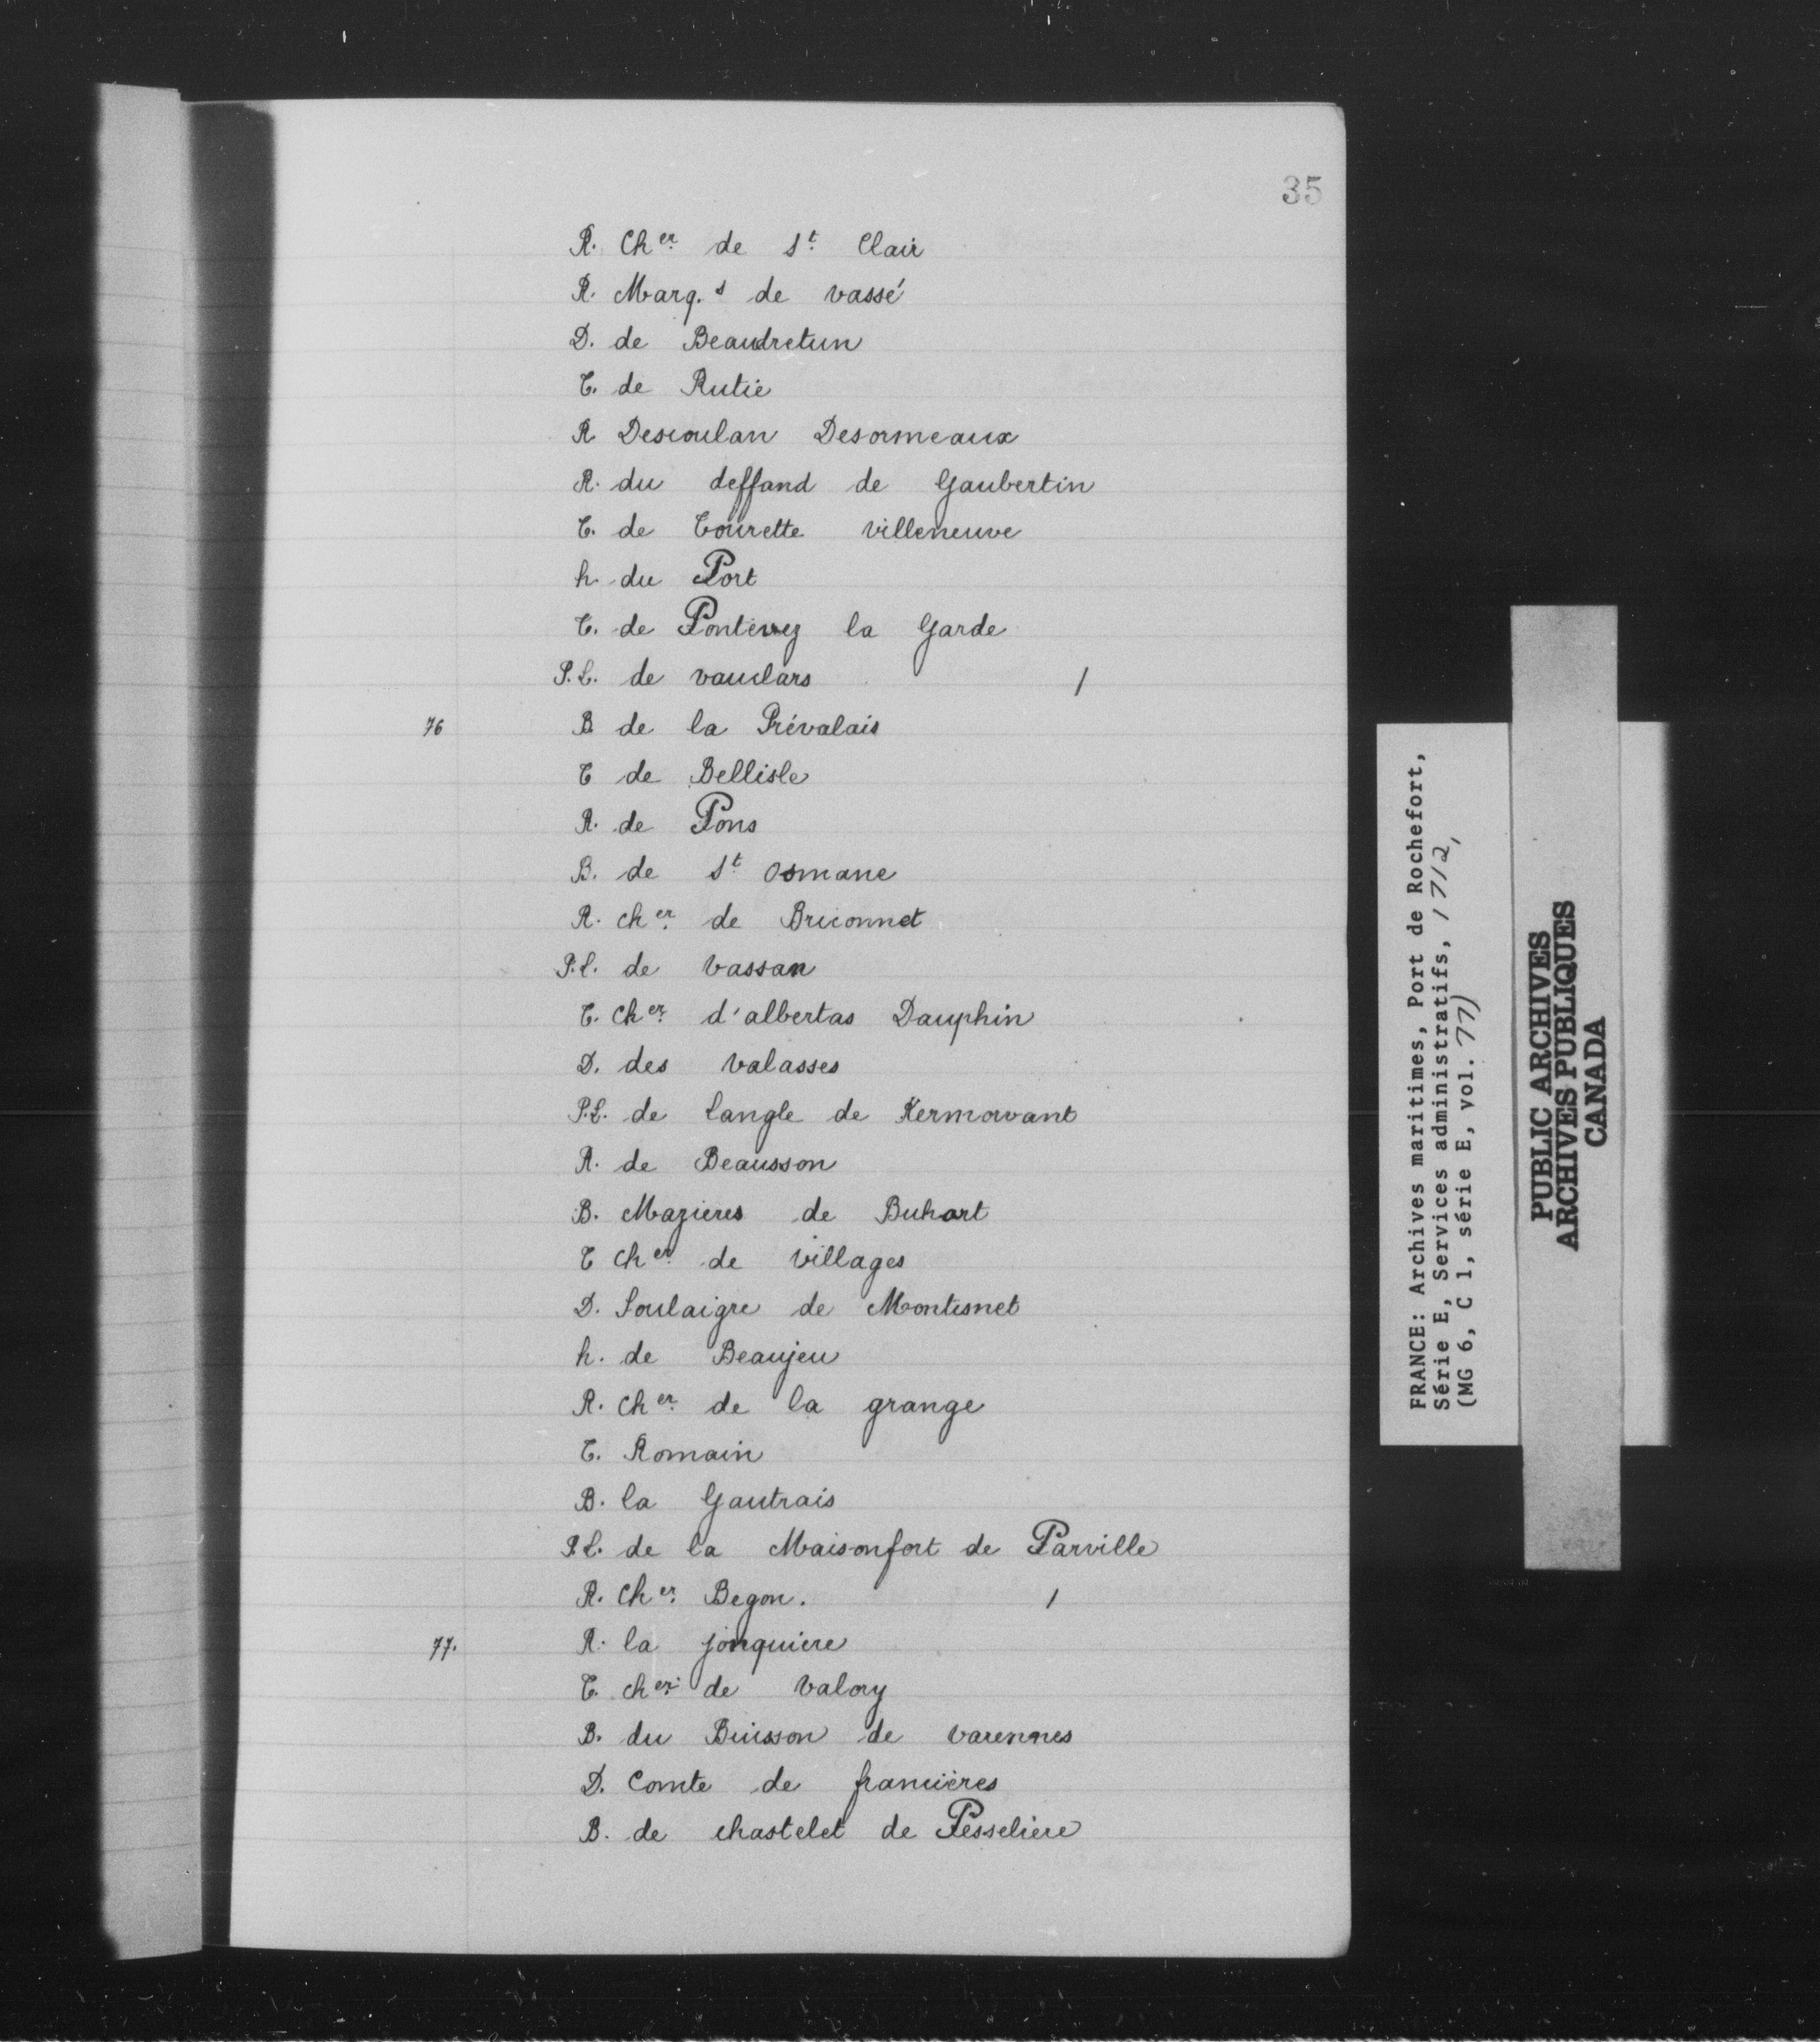 35
R. Cher. de St. Clair
R. Marq.s de vassé
D. de Beaudretun
T. de Rutie
R Descoulan Desormeaux
R. du deffand de Gaubertin
T. de Tourette villeneuve
h. du Port
T. de Pontevez la Garde
P.L. de vauclars /
76 B de la Prévalais
T de Bellisle
R. de Pons
B. de St. Osmane
R. cher. de Briconnet
P.L. de Vassan
T. Cher. d'albertas Dauphin
D. des Valasses
P.L. de Langle de Kermorvant
R. de Beausson
B. Mazieres de Buhart
T cher. de Villages
D. Soulaigre de Montesnet
h. de Beaujeu
R. cher. de la grange
T. Romain
B. la Gautrais
P.L. de la Maisonfort de Parville
R. Cher. Begon. /
77. R. la jonquiere
T. cher. de Valory
B. du Buisson de varennes
D. Comte de francières
B. de chastelet de Pesseliere
FRANCE: Archives maritimes, Port de Rochefort,
Série E, Services administratifs, 1712,
(MG 6, C 1, série E, vol. 77)
PUBLIC ARCHIVES
ARCHIVES PUBLIQUES
CANADA